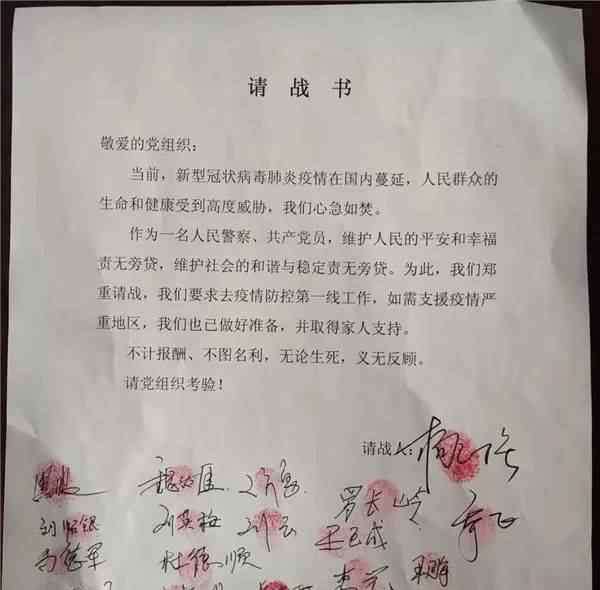 请战书
敬爱的党组织：
当前，新型冠状病毒肺炎疫情在国内蔓延，人民群众的
生命和健康受到高度威胁，我们心急如焚。
作为一名人民警察、共产党员，维护人民的平安和幸福
责无旁贷，维护社会的和谐与稳定责无旁贷。为此，我们郑
重请战，我们要求去疫情防控第一线工作，如需支援疫情严
重地区，我们也已做好准备，并取得家人支持。
不计报酬、不图名利，无论生死，义无反顾。
请党组织考验！
请战人：
罗长岭
刘英梅
杜德顺